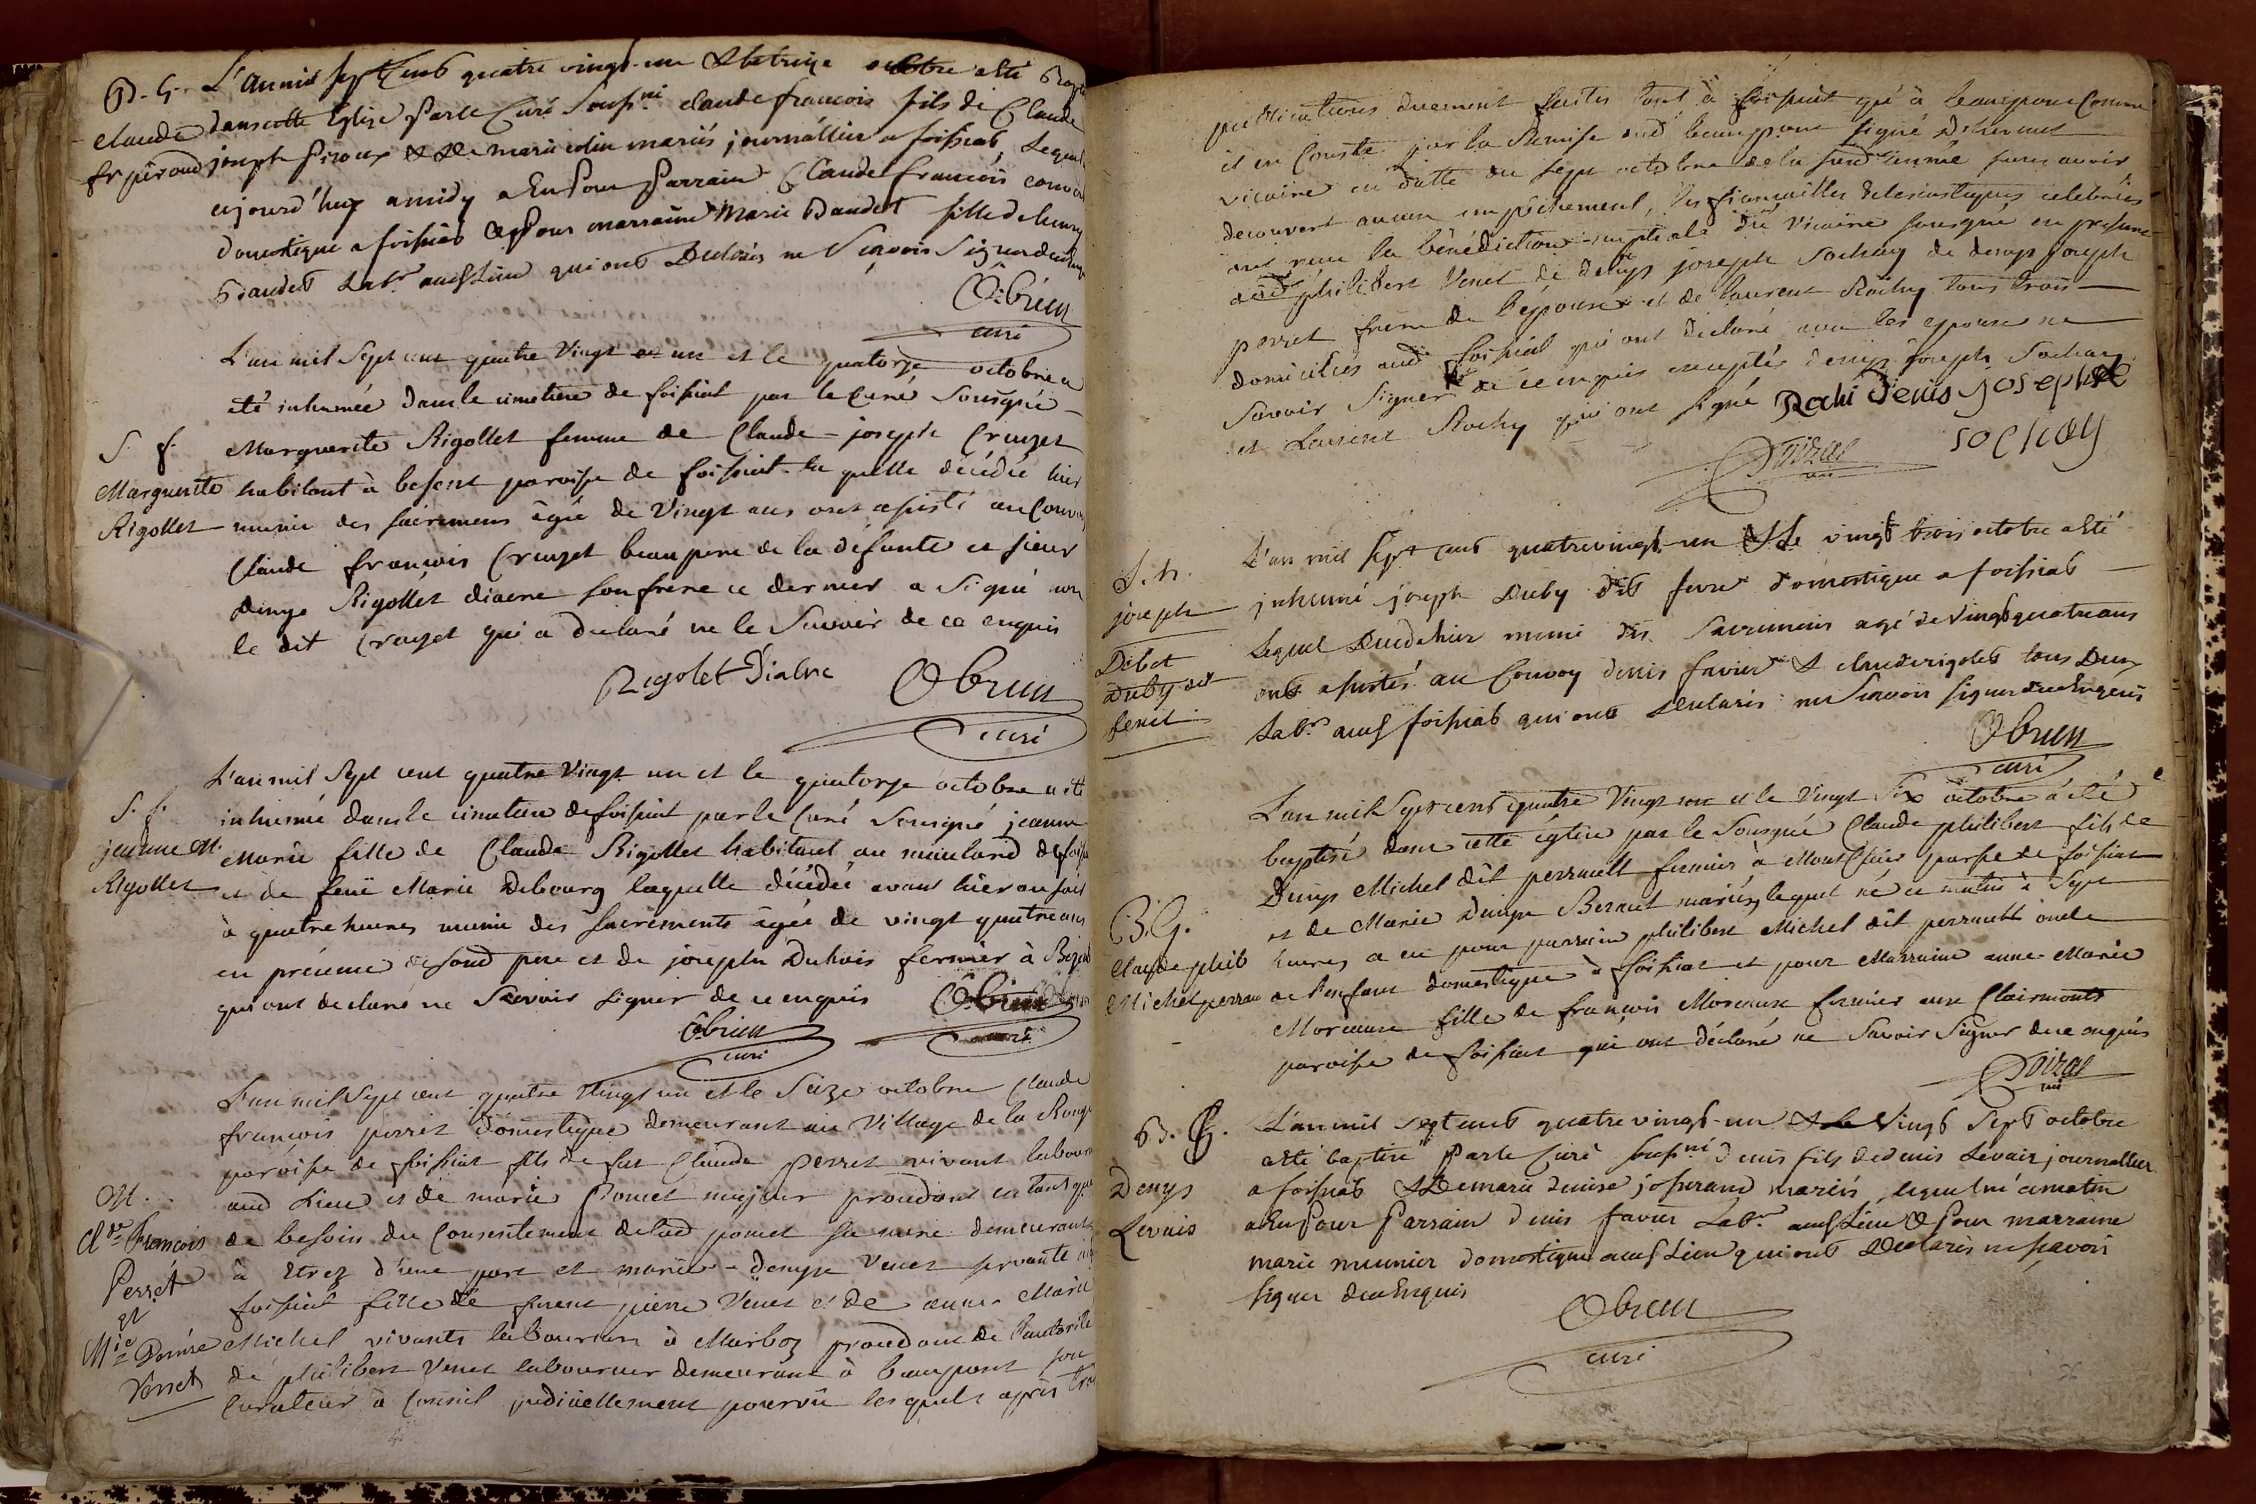 B. G.
Claude
fr péroud
L'an mil sept cent quatre vingt-un & le treize octobre a été
dans cette Eglise par le Curé soussné claude françois fils de Claude
joseph & de marie colin mariés journallier a foissiat, lequel
aujourd'huy a midy a Eu pour parrain Claude françois
domestique a foissiat & pour marraine Marie Baudet fille de
Baudet Labr audt Lieu qui ont Déclarés ne Sçavoir Signer de
Obrien
curé
S. f.
Marguerite
Rigollet
L'an mil sept cent quatre Vingt un et le quatorze octobre a
été inhumée dans le cimetiere de foissiat par le Curé Sousigné
Marguerite Rigollet femme de Claude-joseph Cruzet
habitant à besent paroisse de foissiat la quelle décédée hier
munie des sacremens âgée de Vingt ans ont assisté au Convoy
Claude françois Cruzet beaupere de la défunte et sieur
denys Rigollet diacre son frere ce dernier a Signé non
le dit Cruzet qui a declaré ne le Savoir de ce enquis
Rigolet Diacre Obrien
curé
S. f.
jeanne M.
Rigollet
L'an mil Sept cent quatre Vingt un et le quatorze octobre a été
inhumée dans le cimetiere de foissiat par le Curé Sousigné jeanne
Marie fille de Claude Rigollet habitant au
et de feüe Marie Debourg laquelle décédée avant hier au soir
à quatre heures munie des Sacrements âgée de vingt quatre ans
en présence de sond pere et de joseph Dubois fermier à
qui ont declaré ne Savoir signer de ce enquis Obrien
Obrien
curé
curé
M.
Cde François
Perret
et
Mie Denise
Venet
L'an mil Sept cent quatre Vingt un et le Seize octobre Claude
françois perret domestique demeurant au Village de la
paroisse de foissiat fils de fut Claude perret vivant
aud Lieu et de marie Pomet majeur procedant en tant que
de besoin du Consentement de lad pomet sa mere demeurant
à Etrez d'une part et marie-denyse Venet servante
foissiat fille de furent pierre Venet et de anne Marie
Michel vivants laboureurs à Marboz procedant de l'autorité
de philibert Venet laboureur demeurant à beaupont son
Curateur à Conseil judiciellement pourvû lesquels après
publications duement faites tant à foissiat qu'à beaupont Comme
il en Conste par la Remise aud beaupont signé
vicaire en datte du sept octobre de la susd année sans avoir
decouvert aucun empêchement, les fiançailles Eclesiastiques celebrées
ont reçu la bénédiction nuptiale du Vicaire sousigné en presence
dud philibert Venet de denys joseph Sochay de denys joseph
perret frere de l'epoux et de laurent Rochy tous trois
domiciliés aud foissiat qui ont declaré avec les epoux ne
Savoir Signer de ce enquis excepté denys joseph Sochay
et Laurent Rochy qui ont signé Rochi Denis joseph
sochay
S. h.
joseph
Debet
Duby dit
fevre
L'an mil sept cent quatre vingt-un & le vingt trois octobre a été
inhumé joseph Duby dit fevre domestique a foissiat
Lequel Decedé hier muni des Sacremens agé de vingt quatre ans
ont assistés au Convoy denis favier & claude rigolet tous Deux
Labrs audt foissiat qui ont Declarés ne Sçavoir signer de ce Enquis
Obrien
curé
B. G.
Claude philib
Michel perrau
L'an mil Sept cent quatre Vingt un et le Vingt Six octobre a été
baptisé dans cette église par le Sousigné Claude philibert fils de
Denys Michel dit perrault fermier à parsse de foissiat
et de Marie denyse Bernet mariés, lequel né ce matin à Sept
heures a eu pour parrain philibert Michel dit perrault oncle
de l'enfant domestique à foissiat et pour Marraine anne-Marie
Moreaux fille de françois Moreaux fermier aux Clairmonts
paroisse de foissiat qui ont déclaré ne Savoir Signer de ce enquis
B. G.
Denys
Levais
L'an mil sept cent quatre vingt-un & le Vingt Sept octobre
a été baptisé par le Curé soussné denis fils de denis Levais journallier
a foissiat & de marie denise josserand mariés, lequel né ce matin
a Eu pour parrain denis favier Labr audt Lieu & pour marraine
marie meunier domestique audt Lieu qui ont Declarés ne sçavoir
signer de ce Enquis
Obrien
curé